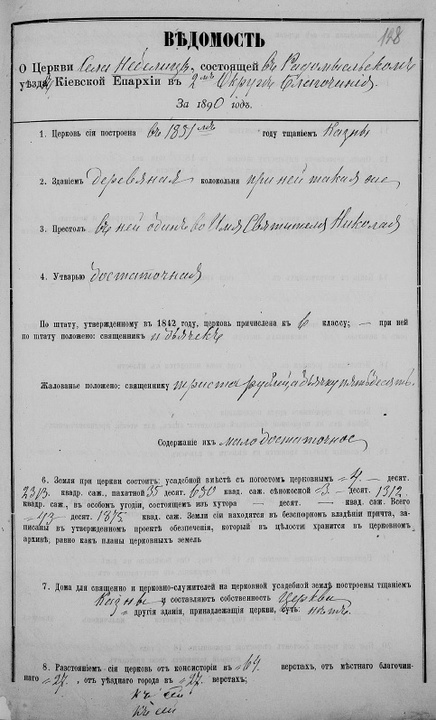 148
ВѢДОМОСТЬ
О Церкви Села Небелицъ, состоящей въ Радомысльскомъ
уѣздѣ Кіевской Епархіи въ 2мъ Округѣ Благочинія.
За 1890 годъ.
1. Церковь сія построена въ 1831мъ году тщаніемъ Казны
2. Зданіемъ деревянная колокольня при ней такая же
3. Престолъ въ ней одинъ во Имя Святителя Николая
4. Утварью достаточная
По штату, утвержденному въ 1842 году, церковь причислена къ 6 классу; — при ней
по штату положено: священникъ и дьячекъ
Жалованье положено: священнику триста рублей, а дьячку пятьдесятъ.
Содержаніе ихъ малодостаточное
6. Земли при церкви состоитъ: усадебной вмѣстѣ съ погостомъ церковнымъ 4 — десят.
2313 квадр. саж., пахатной 35 десят. 650 квадр. саж. сѣнокосной 3 — десят. 1312
квадр. саж., въ особомъ угодіи, состоящемъ изъ хутора — десят. — квадр. саж. Всего
43 десят. 1875 квад. саж. Земли сіи находятся въ безспорномъ владѣніи причта, за-
писаны въ утвержденномъ проектѣ обезпеченія, который въ цѣлости хранится въ церковномъ
архивѣ, равно какъ планы церковныхъ земель
7. Дома для священно и церковно-служителей на церковной усадебной землѣ построены тщаніемъ
Казны и составляютъ собственность Церкви
другія зданія, принадлежащія церкви, суть: нѣтъ
8. Разстояніемъ сія церковь отъ консисторіи въ 64 верстахъ, отъ мѣстнаго благочин-
наго 27, отъ уѣзднаго города въ 27 верстахъ;